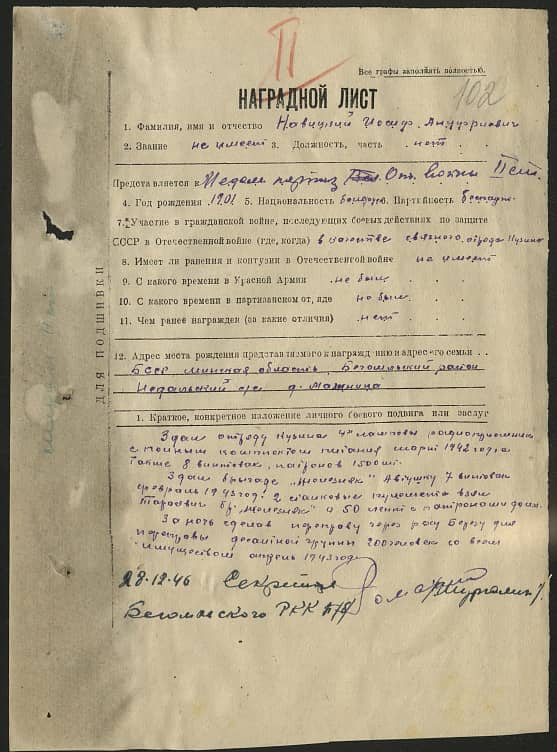 II
Все графы заполнять полностью.
102
НАГРАДНОЙ ЛИСТ
1. Фамилия, имя и отчество Навицкий Иосиф Андреевич
2. Звание не имеет 3. Должность, часть нет
Представляется к Медали партиз Отч. войны II ст.
4. Год рождения 1901 5. Национальность Партийность беспарт.
7. Участие в гражданской войне, последующих боевых действиях по защите
СССР в Отечественной войне (где, когда) в качестве связного отряда Кузина
8. Имеет ли ранения и контузии в Отечественной войне не имеет
9. С какого времени в Красной Армии не был
10. С какого времени в партизанском от, яде не был
11. Чем ранее награжден (за какие отличия) нет
ДЛЯ ПОДШИВКИ
12. Адрес места рождения представляемого к награждению и адрес его семьи . .
БССР минская область, Бегомльский район
с/с д.
1. Краткое, конкретное изложение личного боевого подвига или заслуг
Здал отряду Кузина 4х ламповый радиоприемник
с полным комплектом питания март 1942 года
также 8 винтовак, патронов 1500 шт.
Здал бригаде „Железняк" 7 винтовак
февраль 1943 год. 2 станковые пулемета взял
Тарасевич бр. „Железняк" и 50 лент с патронами
За ночь сделав переправу через реку Березу для
переправы десантной группы 200 человек со всем
имуществом апрель 1943 года
28.12.46 Секретарь
Бегомльского РКК